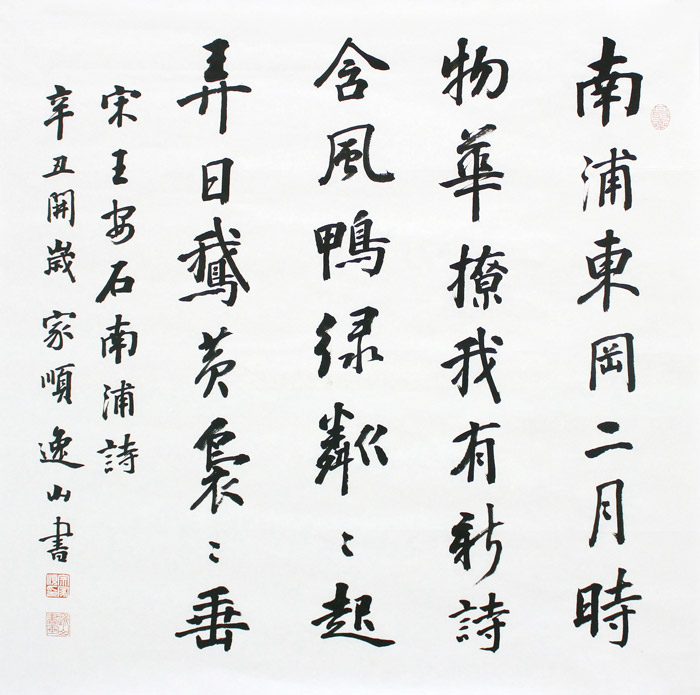 南浦東岡二月時
物華撩我有新詩
含風鴨緑粼〻起
弄日鵝黄裊〻垂
宋王安石南浦詩
辛丑開歲 家順 逸山書